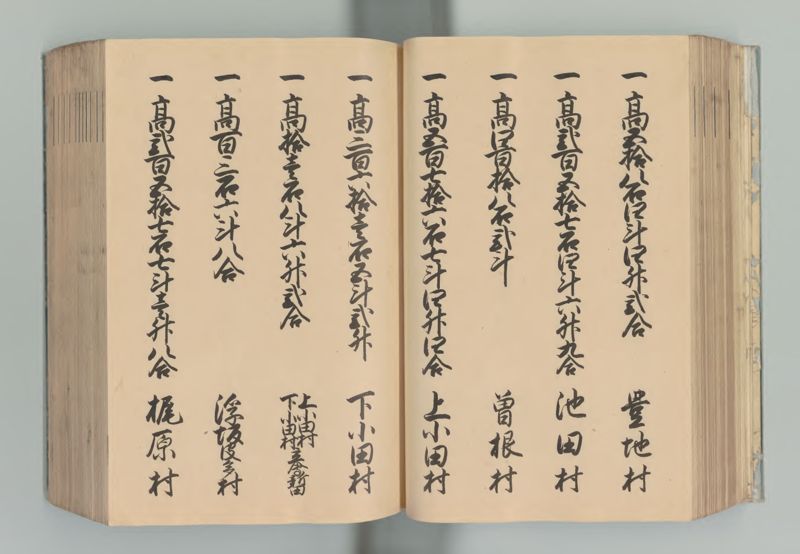 一 高五拾八石四斗四升弐合 豊地村
一 高弐百五拾七石四斗六升九合 池田村
一 高四百拾八石弐斗 曽根村
一 高五百七拾六石七斗四升四合 上小田村
一 高三百六拾壱石五斗弐升 下小田村
一 高拾壱石八斗六升弐合 上小田村 下小田村 新田
一 高百三石六斗八合 浮坂 村
一 高弐百五拾七石七斗壱升八合 梶原村